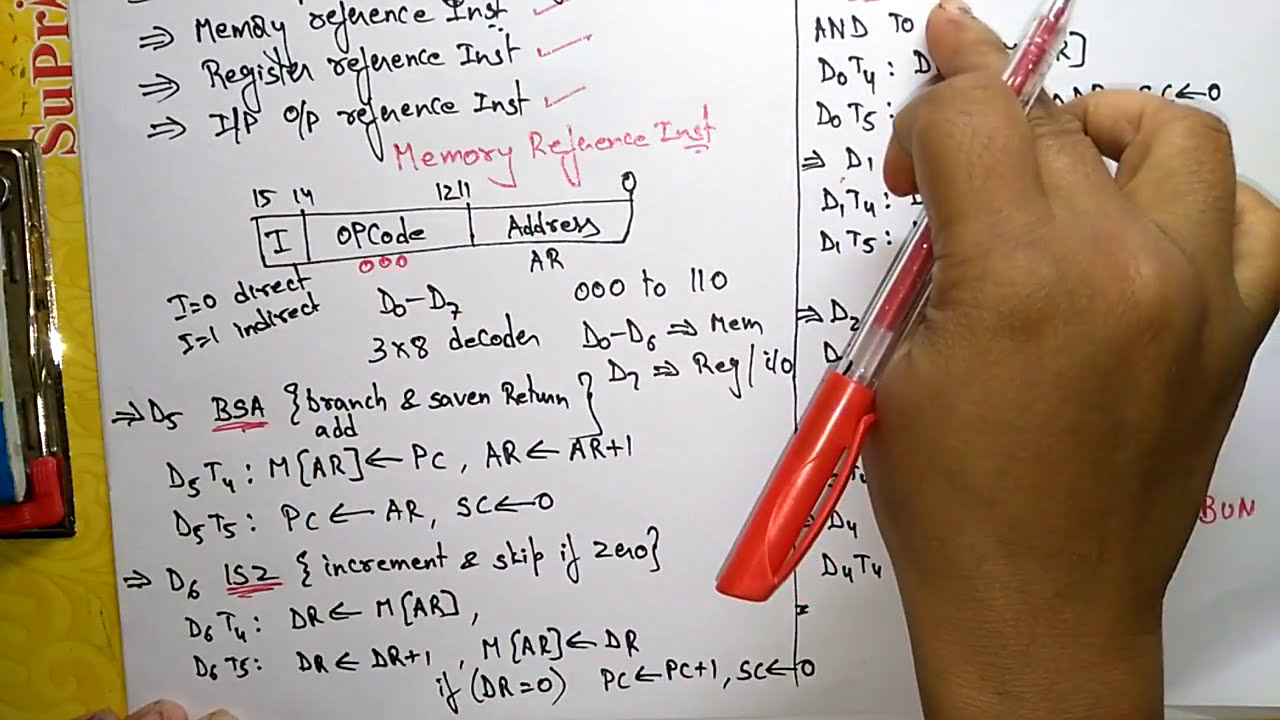 SuPri
⇒ Memory reference Inst ✓
⇒ Register reference Inst ✓
⇒ I/P O/P reference Inst ✓
Memory Reference Inst
15 14 12 11 0
I OPCode Address
000 AR
I=0 direct
I=1 indirect
D0-D7
3x8 decoder
000 to 110
D0-D6 ⇒ Mem
D7 ⇒ Reg/i/o
⇒ D5 BSA {branch & saven Return
add }
D5T4: M[AR]←PC, AR←AR+1
D5T5: PC←AR, SC←0
⇒ D6 ISZ {increment & skip if zero}
D6T4: DR←M[AR],
D6T5: DR←DR+1, M[AR]←DR
if (DR=0) PC←PC+1, SC←0
AND TO
D0T4: D R]
D0T5: SC←0
⇒ D1
D1T4:
D1T5:
⇒ D2
D4 BUN
D4T4